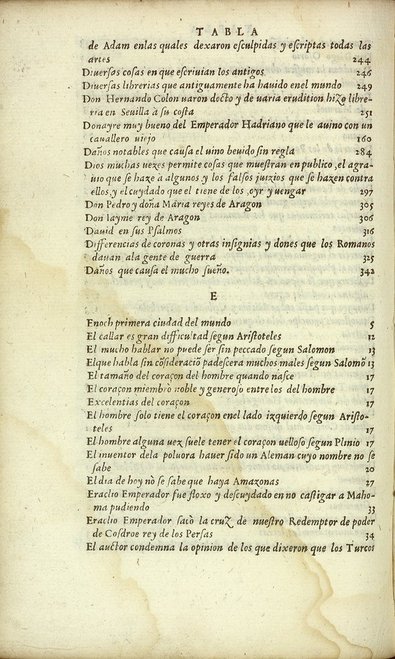 TABLA
de Adam enlas quales dexaron esculpidas y escriptas todas las
artes 244
Diuersas cosas en que escriuian los antigos 246
Diuersas librerias que antiguamente ha hauido enel mundo 249
Don Hernando Colon uaron docto y de uaria erudition hizo libre-
ria en Seuilla à su costa 251
Donayre muy bueno del Emperador Hadriano que le auino con un
cauallero uiejo 260
Daños notables que causa el uino beuido sin regla 284
Dios muchas uezes permite cosas que muestran en publico, el agra-
uio que se haze a algunos y los falsos juizios que se hazen contra
ellos, y el cuydado que el tiene de los, oyr y uengar 297
Don Pedro y doña Maria reyes de Aragon 305
Don Iayme rey de Aragon 306
Dauid en sus Psalmos 316
Differencias de coronas y otras insignias y dones que los Romanos
dauan ala gente de guerra 325
Daños que causa el mucho sueño. 342
E
Enoch primera ciudad del mundo 5
El callar es gran difficultad segun Aristoteles 12
El mucho hablar no puede ser sin peccado segun Salomon 13
Elque habla sin cõsideraciõ padescera muchos males segun Salomõ 13
El tamaño del coraçon del hombre quando nasce 17
El coraçon miembro noble y generoso entre los del hombre 17
Excelentias del coraçon 17
El hombre solo tiene el coraçon enel lado izquierdo segun Aristo-
teles 17
El hombre alguna uez suele tener el coraçon uelloso segun Plinio 17
El inuentor dela poluora hauer sido un Aleman cuyo nombre no se
sabe 20
El dia de hoy no se sabe que haya Amazonas 27
Eraclio Emperador fue floxo y descuydado en no castigar a Maho-
ma pudiendo 33
Eraclio Emperador sacò la cruz de nuestro Redemptor de poder
de Cosdroe rey de los Persas 34
El auctor condemna la opinion de los que dixeron que los Turcos